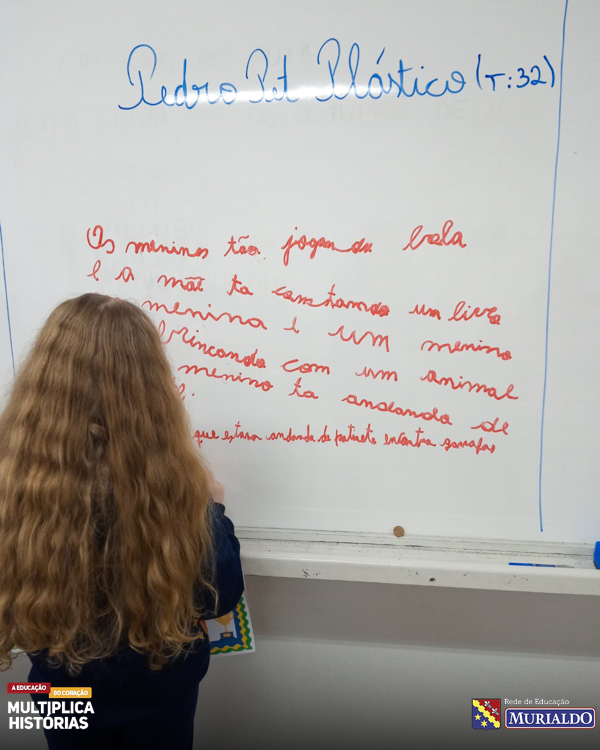 Pedro Pet Plástico (T:32)
Os meninos tão jogando bola
e a mãe ta comstamdo um livro
menina e um menino
brincando com um animal
menino ta andando de
que estava andando de patinete encontra garrafas
A EDUCAÇÃO
DO CORAÇÃO
MULTIPLICA
HISTÓRIAS
Rede de Educação
MURIALDO